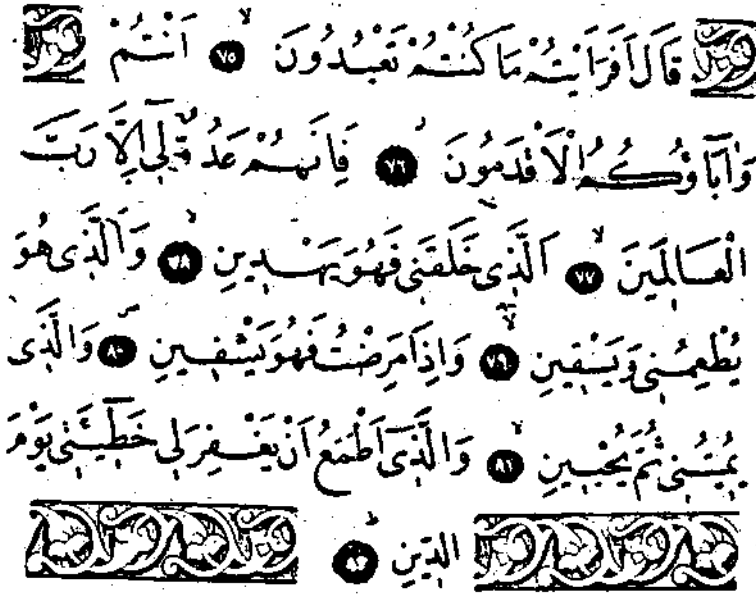 قَالَ اَفَرَاَيْتُمْ مَا كُنْتُمْ تَعْبُدُونَ ﴿٧٥﴾ اَنْتُمْ
وَاٰبَٓاؤُ۬كُمُ الْاَقْدَمُونَ ﴿٧٦﴾ فَاِنَّهُمْ عَدُوٌّ ل۪ٓي اِلَّا رَبَّ
الْعَالَم۪ينَ ﴿٧٧﴾ اَلَّذ۪ي خَلَقَن۪ي فَهُوَ يَهْد۪ينِ ﴿٧٨﴾ وَالَّذ۪ي هُوَ
يُطْعِمُن۪ي وَيَسْق۪ينِ ﴿٧٩﴾ وَاِذَا مَرِضْتُ فَهُوَ يَشْف۪ينِ ﴿٨٠﴾ وَالَّذ۪ي
يُم۪يتُن۪ي ثُمَّ يُحْي۪ينِ ﴿٨١﴾ وَالَّذ۪ٓي اَطْمَعُ اَنْ يَغْفِرَ ل۪ي خَط۪ٓيـَٔت۪ي يَوْمَ
الدّ۪ينِ ﴿٨٢﴾